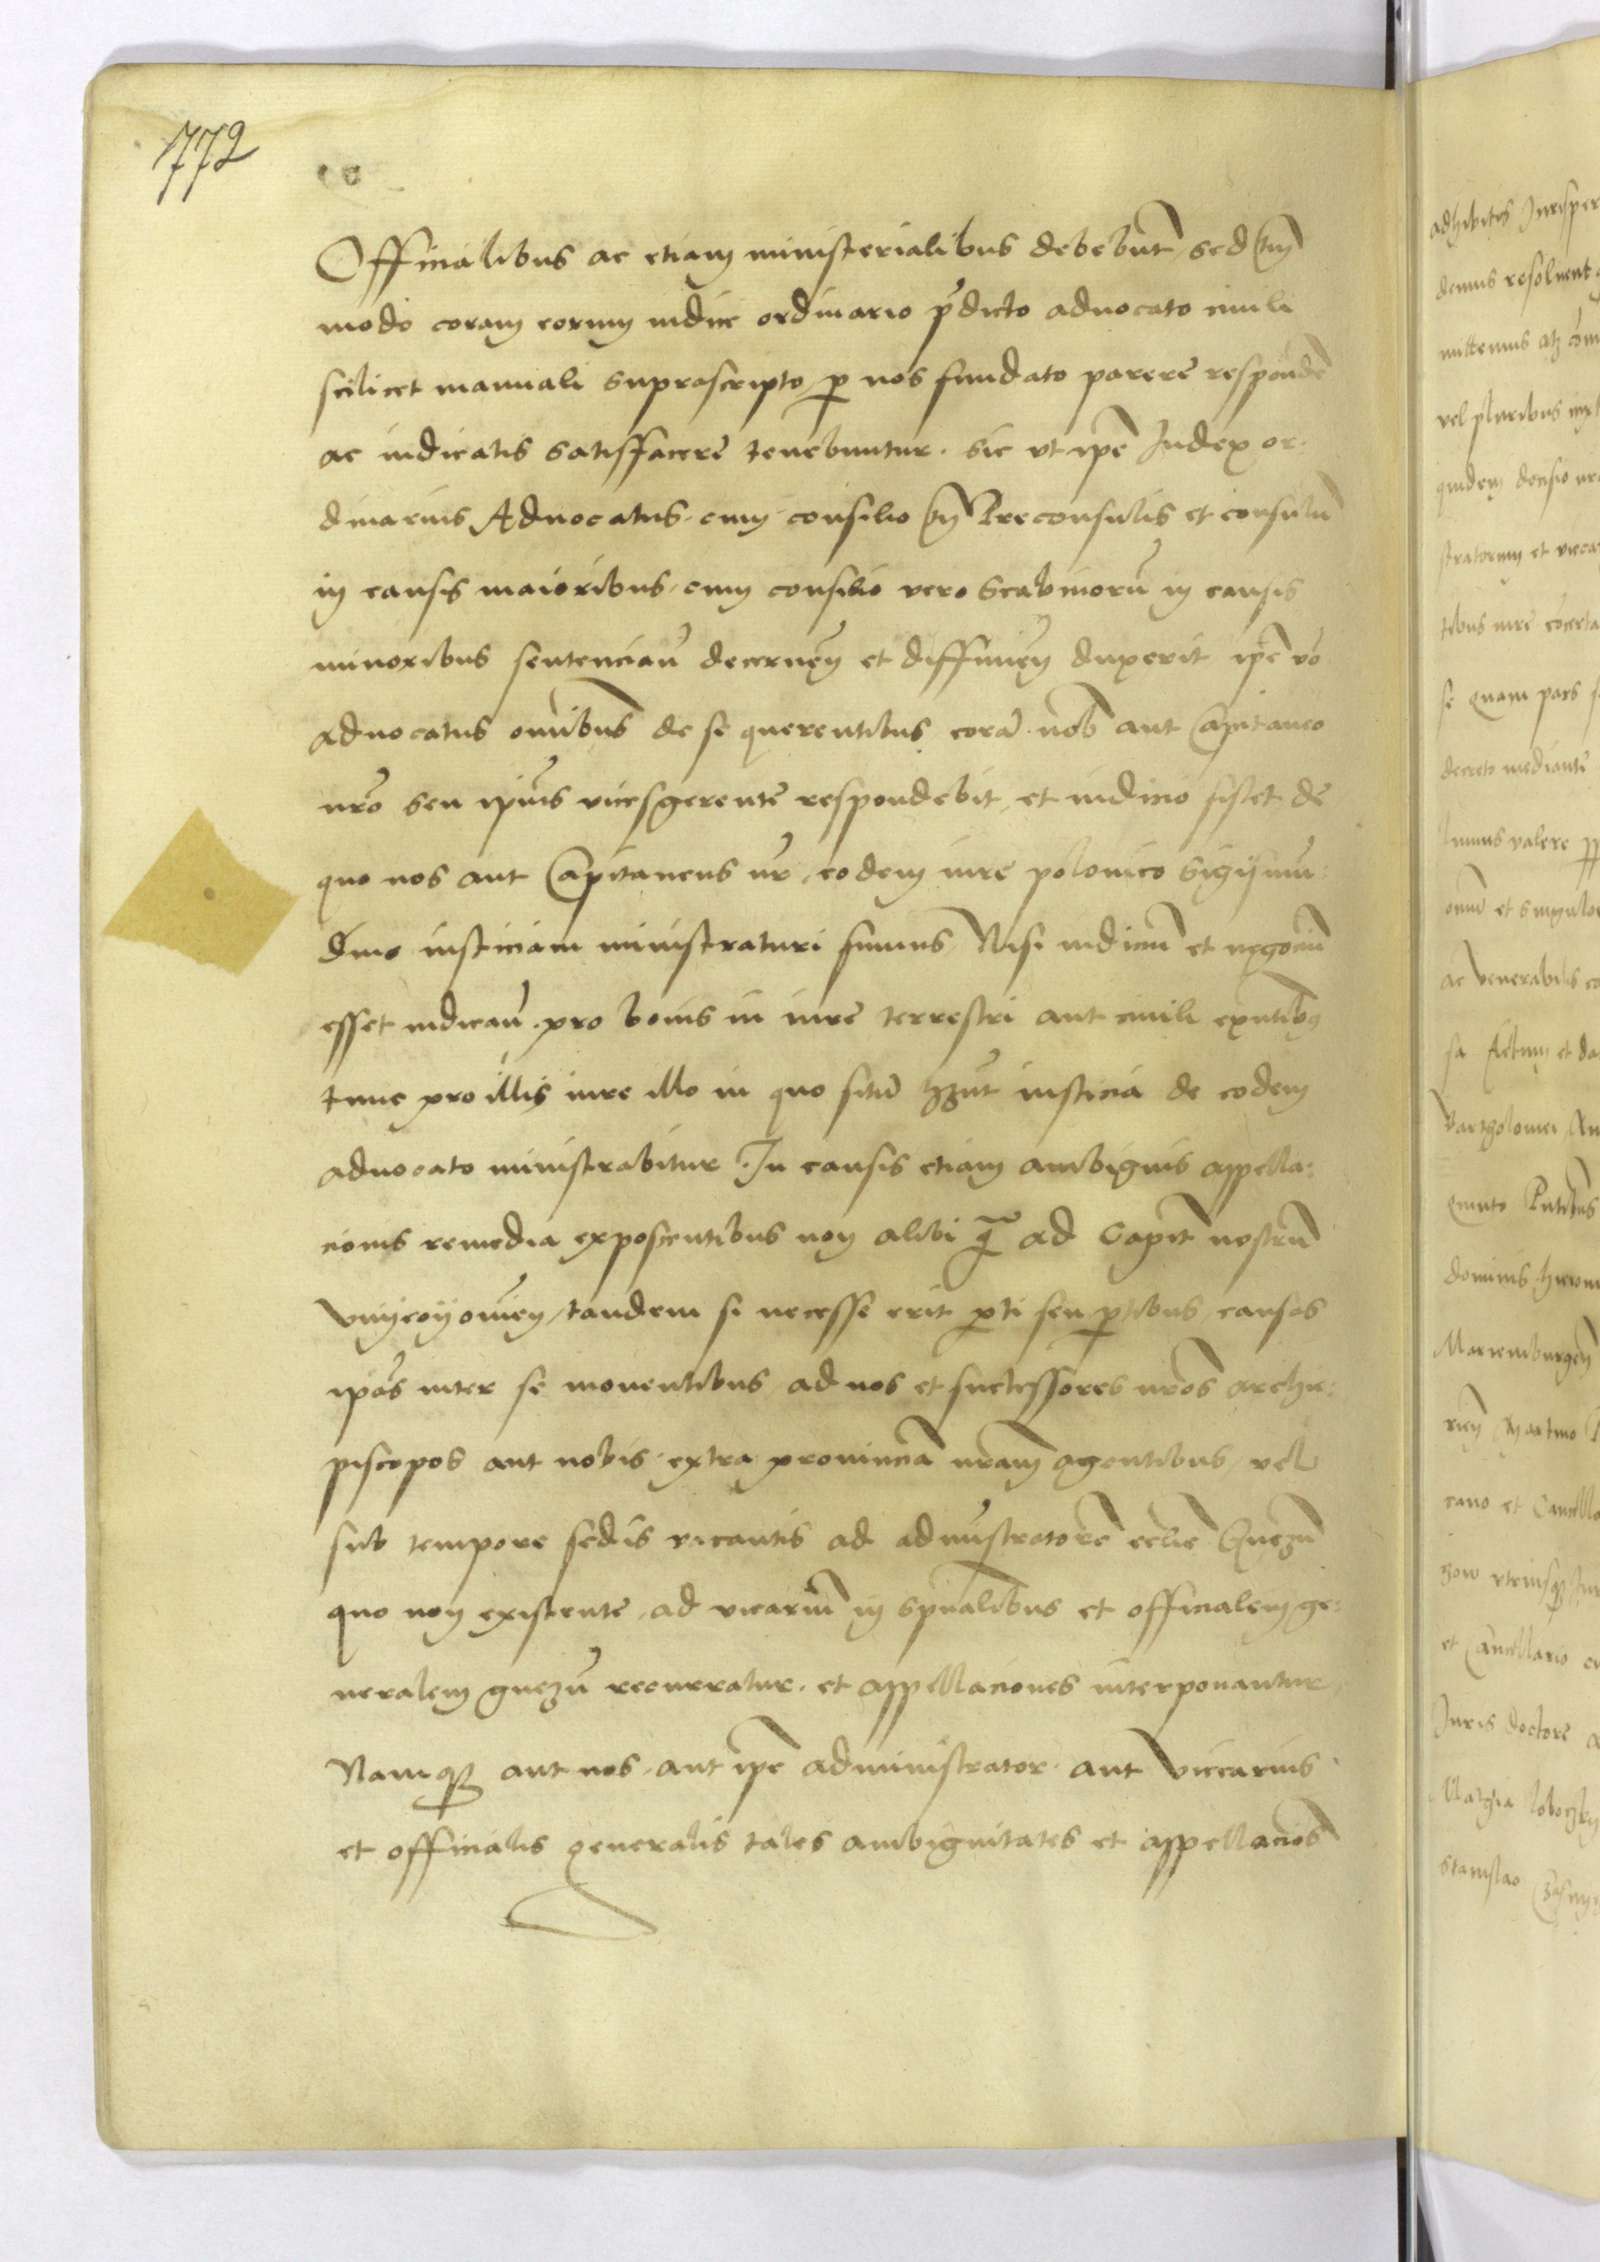 772
Officialibus ac etiam ministerialibus debebũt, sed tm̃
modo coram eorum iudice ordinario p̃dicto aduocato ciuili
scilicet manuali suprascripto, ꝑ nos fundato parere respondẽ
ac iudicatis satisffacere tenebuntur. sic vt ip̃e Judex or-
dinarius Aduocatus, cum consilio tm̃ Preconsulis et consulũ
in causis maioribus, cum consilio vero Scabinorũ in causis
minoribus sentenciañ decerneñ et diffinieñ duxerit ip̃e vo
aduocatus omibus de se querentibus corã nob aut Capitaneo
nr̃o seu ipiũs vicesgerente respondebit, et iudicio sistet de
quo nos aut Capitaneus nr̃, eodem iure polonico Sigismũ:
dino iusticiam ministraturi sumus, Nisi iudiciũ et negociũ
esset iudicañ, pro bonis in iure terrestri aut ciuili exñtibꝫ
tunc pro illis iure illo in quo sitũ hẽnt iusticia de eodem
aduocato ministrabitur. In causis etiam ambiguis appella:
cionis remedia exposcentibus non alibi q̃ ad Capit̃ nostrũ
vnyeyouieñ, tandem si necesse erit ꝑti seu ꝑtibus, causas
ipãs inter se mouentibus, ad nos et successores nr̃os archie:
piscopos aut nobis extra prouinciã nr̃am agentibus, vel
sub tempore sedis vacantis ad admĩstratorẽ eccl̃ie Gneznen̄
quo non existente, ad vicariũ in sp̃ualibus et officialem ge:
neralem gneznen̄ recurratur, et appellaciones interponantur,
Namqꝫ aut nos, aut ip̃e administrator, aut viccarius
et officialis generalis tales ambiguitates et appellacioẽs
adhibitis Jurisper
demus resoluent
mittemus atqꝫ com
vel pluribus
quidem decisio
stratorum et vica
tibus iure
se quam pars
decreto mediante
lumus valere
omiũ et singulor
ac venerabilis
Actum et da
Bartholomei
quinto
dominis hieron
Mariemburgeñ
Martino
cano et Cancella
et Cancellario
Juris doctore
Mathia
Stanislao